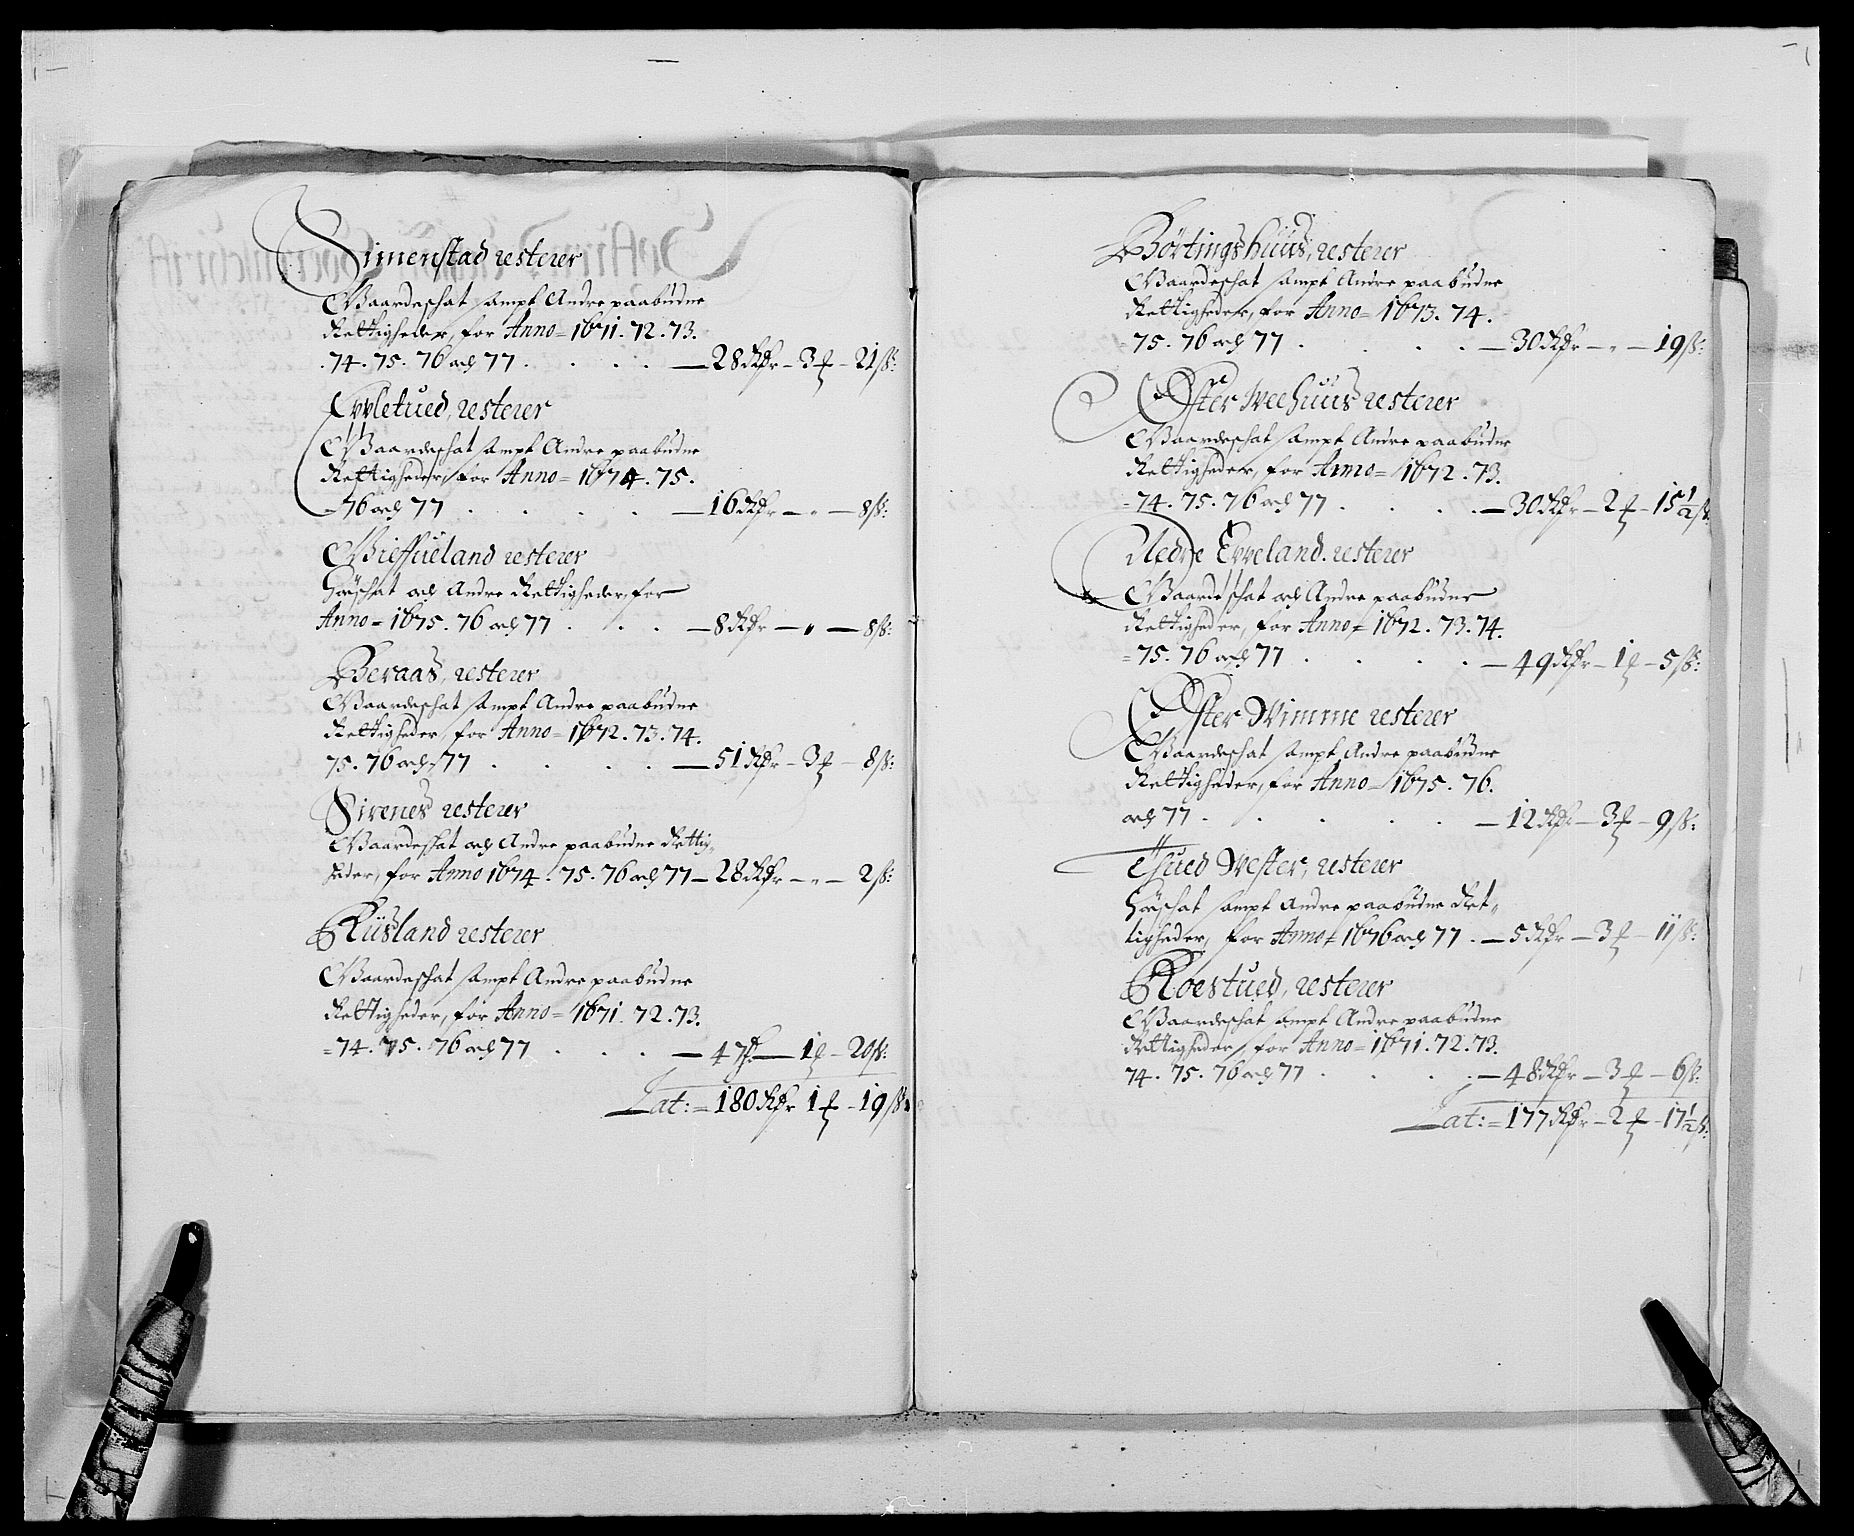 Simenstad resterer
Gaardeschat sampt Andre paabudne
Rettigheder, for Anno = 1671. 72. 73.
74. 75. 76 och 77 . . . . — 28 Rdr — 3 ℔ — 21 ß:
Eppletued, resterer
Gaardeschat sampt Andre paabudne
Rettigheder, for Anno = 1674. 75.
= 76 och 77 . . . . — 16 Rdr — „ — 8 ß:
Gieffueland resterer
Høyschat och Andre Rettigheder, for
Anno = 1675. 76 och 77 . . . — 8 Rdr — „ — 8 ß:
Beraas, resterer
Gaardeschat sampt Andre paabudne
Rettigheder, for Anno = 1672. 73. 74.
75. 76 och 77 . . . . — 51 Rdr — 3 ℔ — 8 ß:
Sirenes resterer
Gaardeschat och Andre paabudne Rettig„
heder, for Anno 1674. 75. 76 och 77 — 28 Rdr — „ — 2 ß:
Riisland resterer
Gaardeschat sampt Andre paabudne
Rettigheder, for Anno = 1671. 72. 73.
= 74. 75. 76 och 77 . . . — 47 — 1 ℔ — 20 ß:
Lat: = 180 Rdr 1 ℔ — 19 ß
Børtingshuus, resterer
Gaardeschat sampt Andre paabudne
Rettigheder, for Anno = 1673. 74.
75. 76 och 77 . . . . — 30 Rdr — „ — 19 ß:
Øster Weehuus resterer
Gaardeschat sampt Andre paabudne
Rettigheder, for Anno = 1672. 73.
= 74. 75. 76 och 77 . . . . — 30 Rdr — 2 ℔ — 15 1/2 ß
Nedre Eppeland. resterer
Gaardeschat och Andre paabudne
Rettigheder, for Anno = 1672. 73. 74.
= 75. 76 och 77 . . . . — 49 Rdr — 1 ℔ — 5 ß:
Øster Wimme resterer
Gaardeschat sampt Andre paabudne
Rettigheder, for Anno = 1675. 76.
och 77 . . . . . — 12 Rdr — 3 ℔ — 9 ß:
Tued Wester, resterer
Høyschat sampt Andre paabudne Ret„
tigheder, for Anno = 1676 och 77 . — 5 Rdr — 3 ℔ — 11 ß:
Roestued, resterer
Gaardeschat sampt Andre paabudne
Rettigheder, for Anno = 1671. 72. 73.
74. 75. 76 och 77 . . . . — 48 Rdr — 3 ℔ — 6 ß:
Lat: = 177 Rdr — 2 ℔ — 17 1/2 ß: